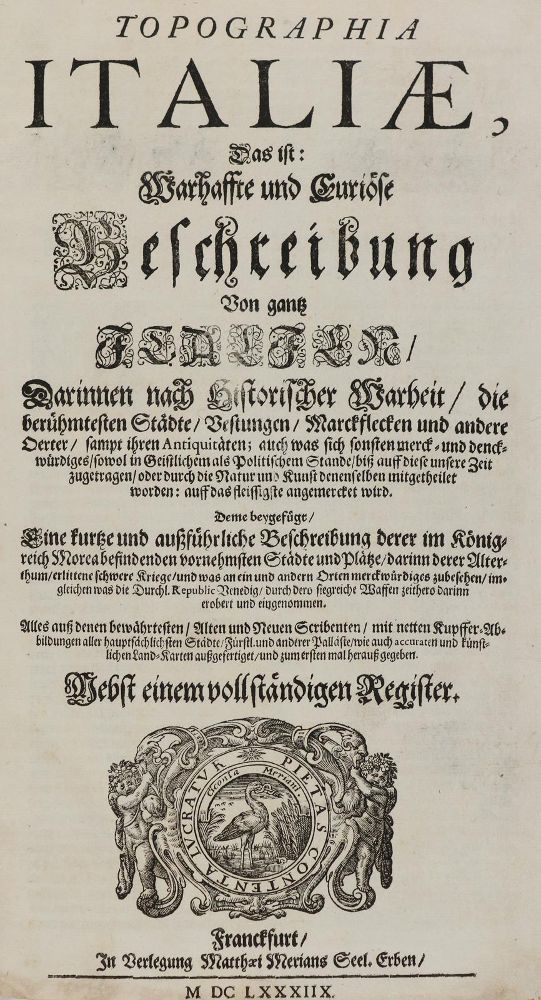 TOPOGRAPHIA
ITALIÆ,
Das ist:
Warhaffte und Curiöse
Beschreibung
Von gantz
ITALIEN/
Darinnen nach Historischer Warheit/ die
berühmtesten Städte/ Vestungen/ Marckflecken und andere
Oerter/ sampt ihren Antiquitäten; auch was sich sonsten merck- und denck-
würdiges/ sowol in Geistlichem als Politischem Stande/ biß auff diese unsere Zeit
zugetragen/ oder durch die Natur und Kunst denenselben mitgetheilet
worden: auff das fleissigste angemercket wird.
Deme beygefügt/
Eine kurtze und außführliche Beschreibung derer im König-
reich Morea befindenden vornehmsten Städte und Plätze/ darinn derer Alter-
thum/ erlittene schwere Kriege/ und was an ein und andern Orten merckwürdiges zubesehen/ im-
gleichen was die Durchl. Republic Venedig/ durch dero siegreiche Waffen zeithero darinn
erobert und eingenommen.
Alles auß denen bewährtesten/ Alten und Neuen Scribenten/ mit netten Kupffer-Ab-
bildungen aller hauptsächlichsten Städte/ Fürstl. und anderer Palläste/ wie auch accuraten und künst-
lichen Land-Karten außgefertiget/ und zum ersten mal herauß gegeben.
Nebst einem vollständigen Register.
PIETAS CONTENTA LUCRATUR
Ciconia Meriani
Franckfurt/
In Verlegung Matthæi Merians Seel. Erben/
M DC LXXXIIX.